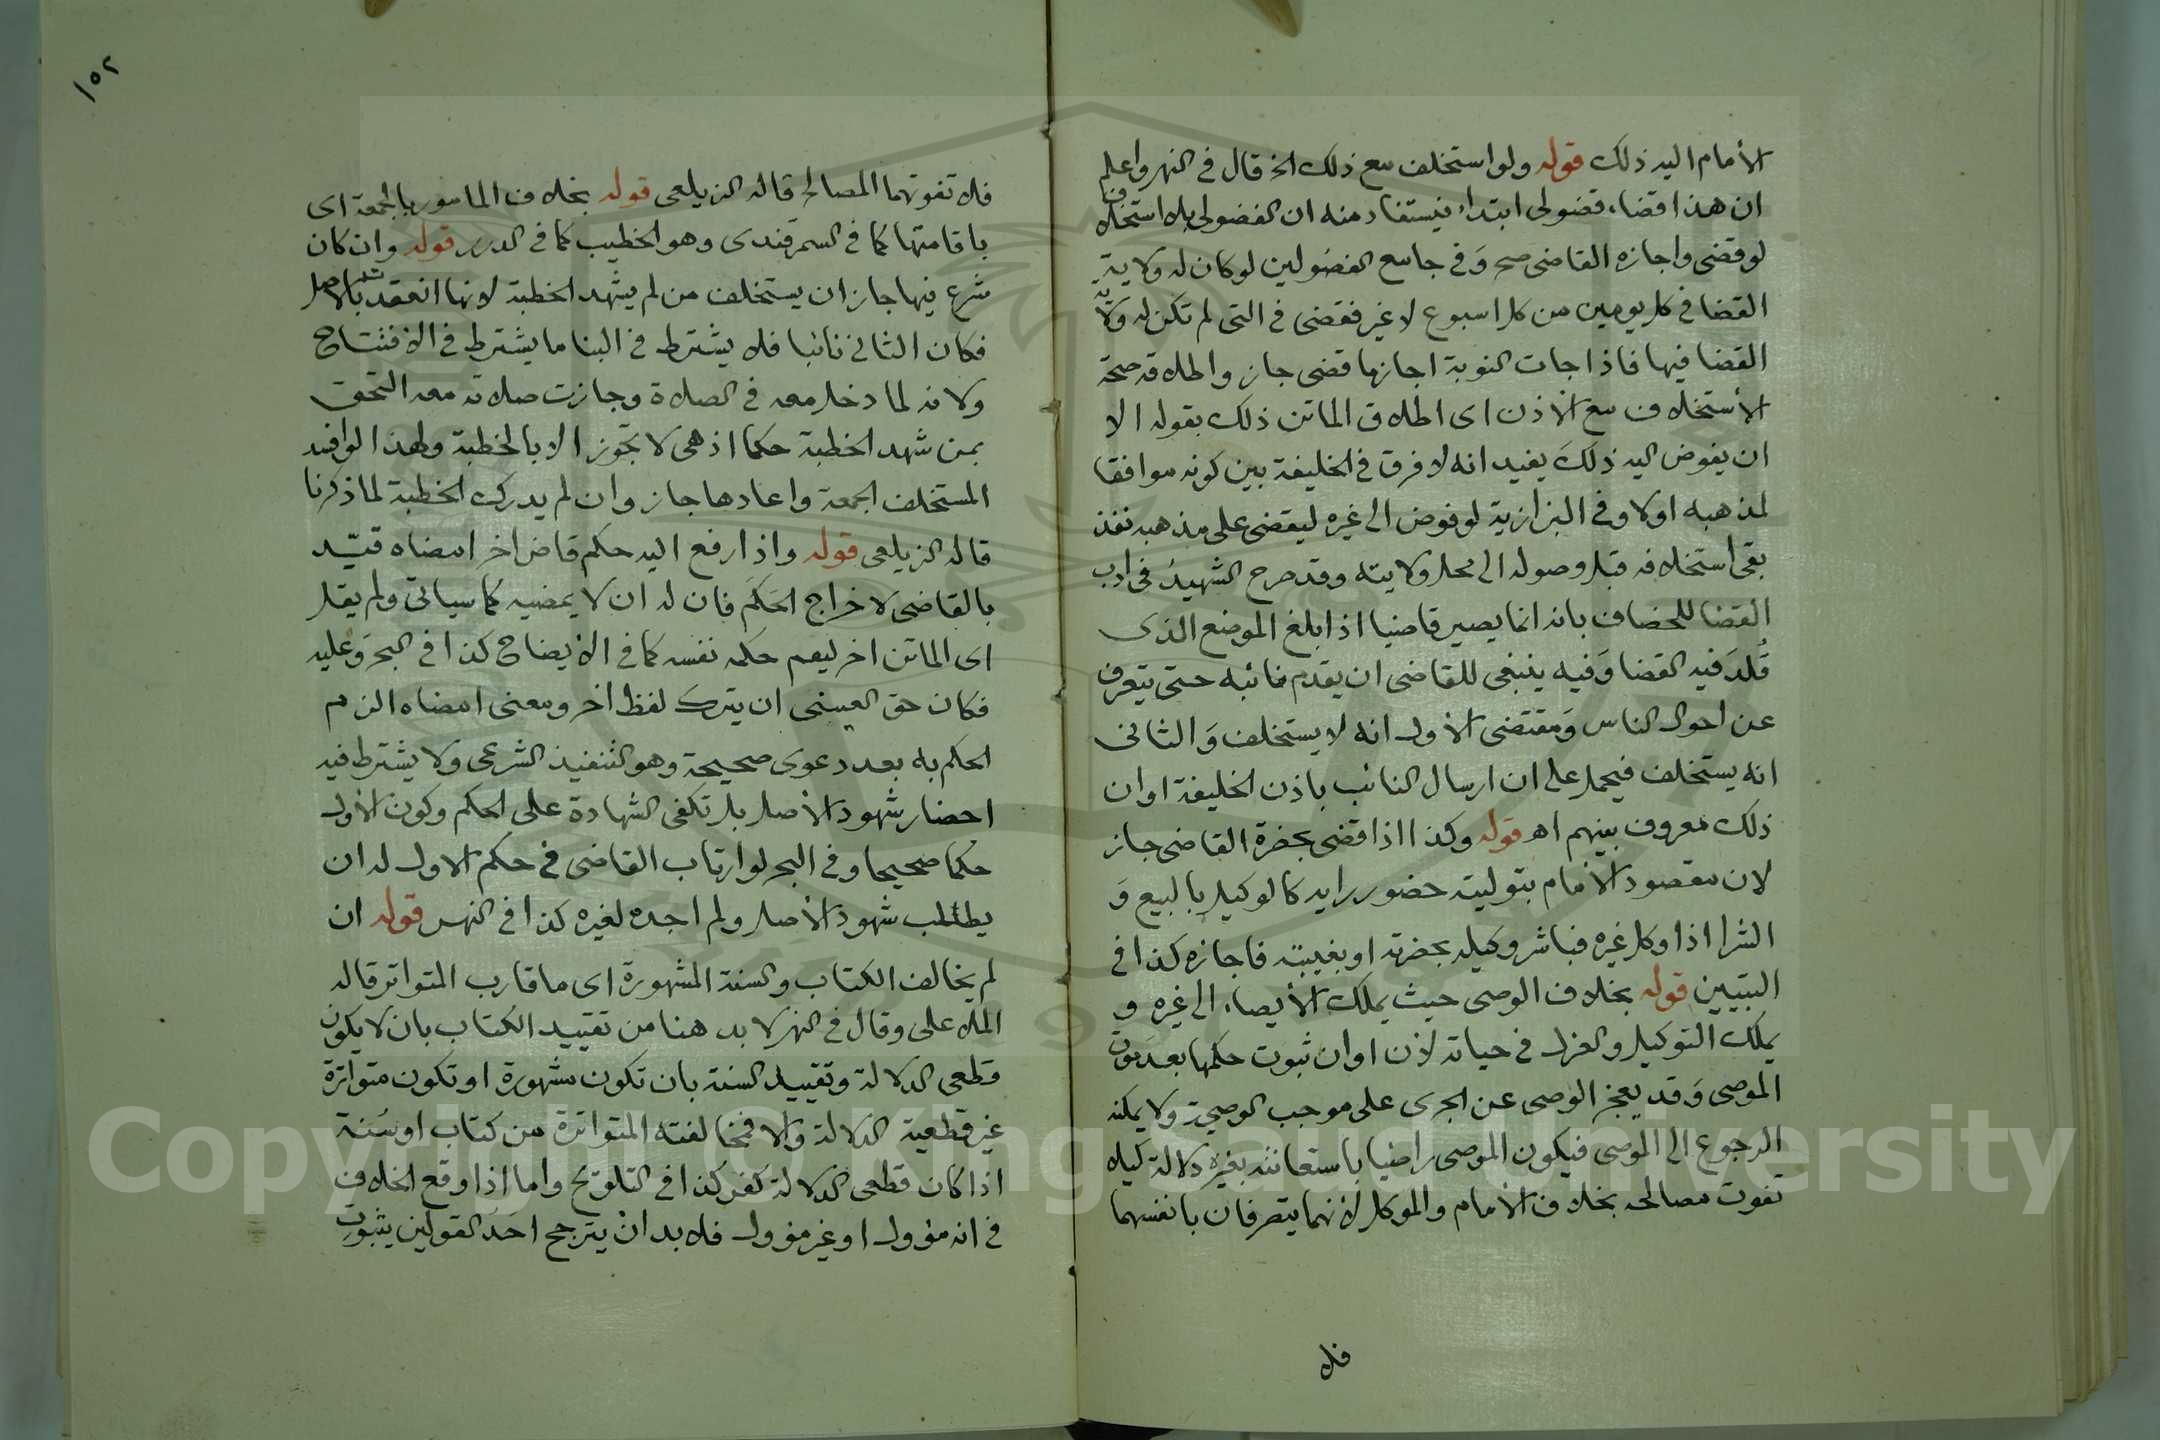 الأمام اليه ذلك قوله ولو استخلف مع ذلك الخ قال في النهر واعلم
ان هذا قضاء فضولى ابتداء فيستفاد منه ان الفضولى بلا استخلاف
لو قضى واجازه القاضى صح وَفي جامع الفضولين لو كان له ولاية
القضا في كل يومين من كل اسبوع لا غير فقضى في التى لم تكن له ولاية
القضا فيها فاذا جات النوبة اجاز ما قضى جاز واطلاقه صحة
الأستخلاف مع الأذن اى اطلاق الماتن ذلك بقوله الا
ان يفوض اليه ذلك يفيد انه لا فرق في الخليفة بين كونه موافقا
لمذهبه اولا وفي البزازية لو فوض الى غيره ليقضى على مذهبه نفذ
بقى استخلافه قبل وصوله الى محل ولايته وقد صرح الشهيد في ادب
القضا للخصاف بانه انما يصير قاضيا اذا بلغ الموضع الذى
قُلّدَ فيه القضا وَفيه ينبغى للقاضى ان يقدم نائبه حتى يتعرف
عن احوال الناس وَمقتضى الأول انه لا يستخلف وَالثانى
انه يستخلف فيحمل على ان ارسال النائب باذن الخليفة او ان
ذلك معروف بينهم اه قوله وكذا اذا قضى بحضرة القاضى جاز
لان مقصود الأمام بتوليته حضور رايه كالوكيل بالبيع وَ
الشرا اذا وكل غيره فباشر وكيله بحضرته او بغيبته فاجازه كذا في
التبيين قوله بخلاف الوصى حيث يملك الأيصاء الى غيره و
يملك التوكيل والعزل في حياته لأن اوان ثبوت حكمها بعد موت
الموصى وَقد يعجز الوصى عن الجرى على موجب الوصية ولا يمكنه
الرجوع الى الموصى فيكون الموصى راضيا باستعانته بغيره دلالة كيلا
تفوت مصالحه بخلاف الأمام والموكل لأنهما يتصرفان بانفسهما
فلا
١٥٢
فلا تفوتهما المصالح قاله الزيلعى قوله بخلاف المامور بالجمعة اى
باقامتها كما في السمرقندى وهو الخطيب كما في الدرر قوله وان كان
شرع فيها جاز ان يستخلف من لم يشهد الخطبة لانها انعقدت بالاصل
فكان الثانى نائبا فلا يشترط في البنا ما يشترط في الافتتاح
ولانه لما دخل معه في الصلاة وجازت صلاته معه التحق
بمن شهد الخطبة حكما اذ هى لا تجوز الا بالخطبة ولهذا لو افسد
المستخلف الجمعة واعادها جاز وان لم يدرك الخطبة لما ذكرنا
قاله الزيلعى قوله واذا رفع اليه حكم قاض اخر امضاه قيّد
بالقاضى لاخراج الحَكَم فان له ان لا يمضيه كما سياتى ولم يقل
اى الماتن اخر ليعم حكمه نفسه كما في الأيضاح كذا في البحر وَعليه
فكان حق العينى ان يترك لفظ اخر ومعنى امضاه الزم
الحكم به بعد دعوى صحيحة وهو التنفيذ الشرعى وَلا يشترط فيه
احضار شهود الأصل بل تكفى الشهادة على الحكم وكون الأول
حكما صحيحا وفي البحر لو ارتاب القاضى في حكم الاول له ان
يطلب شهود الأصل ولم اجده لغيره كذا في النهر قوله ان
لم يخالف الكتاب والسنة المشهورة اى ما قارب المتواتر قاله
الملا على وقال في النهر لا بد هنا من تقييد الكتاب بان لا يكون
قطعى الدلالة وتقييد السنة بان تكون مشهورة او تكون متواترة
غير قطعية الدلالة والا فمخالفته المتواترة من كتاب او سُنة
اذا كان قطعى الدلالة كفر كذا في التلويح واما اذا وقع الخلاف
في انه مؤول او غير مؤول فلا بد ان يترجح احَد القولين بثبوت
Copyright © King Saud University